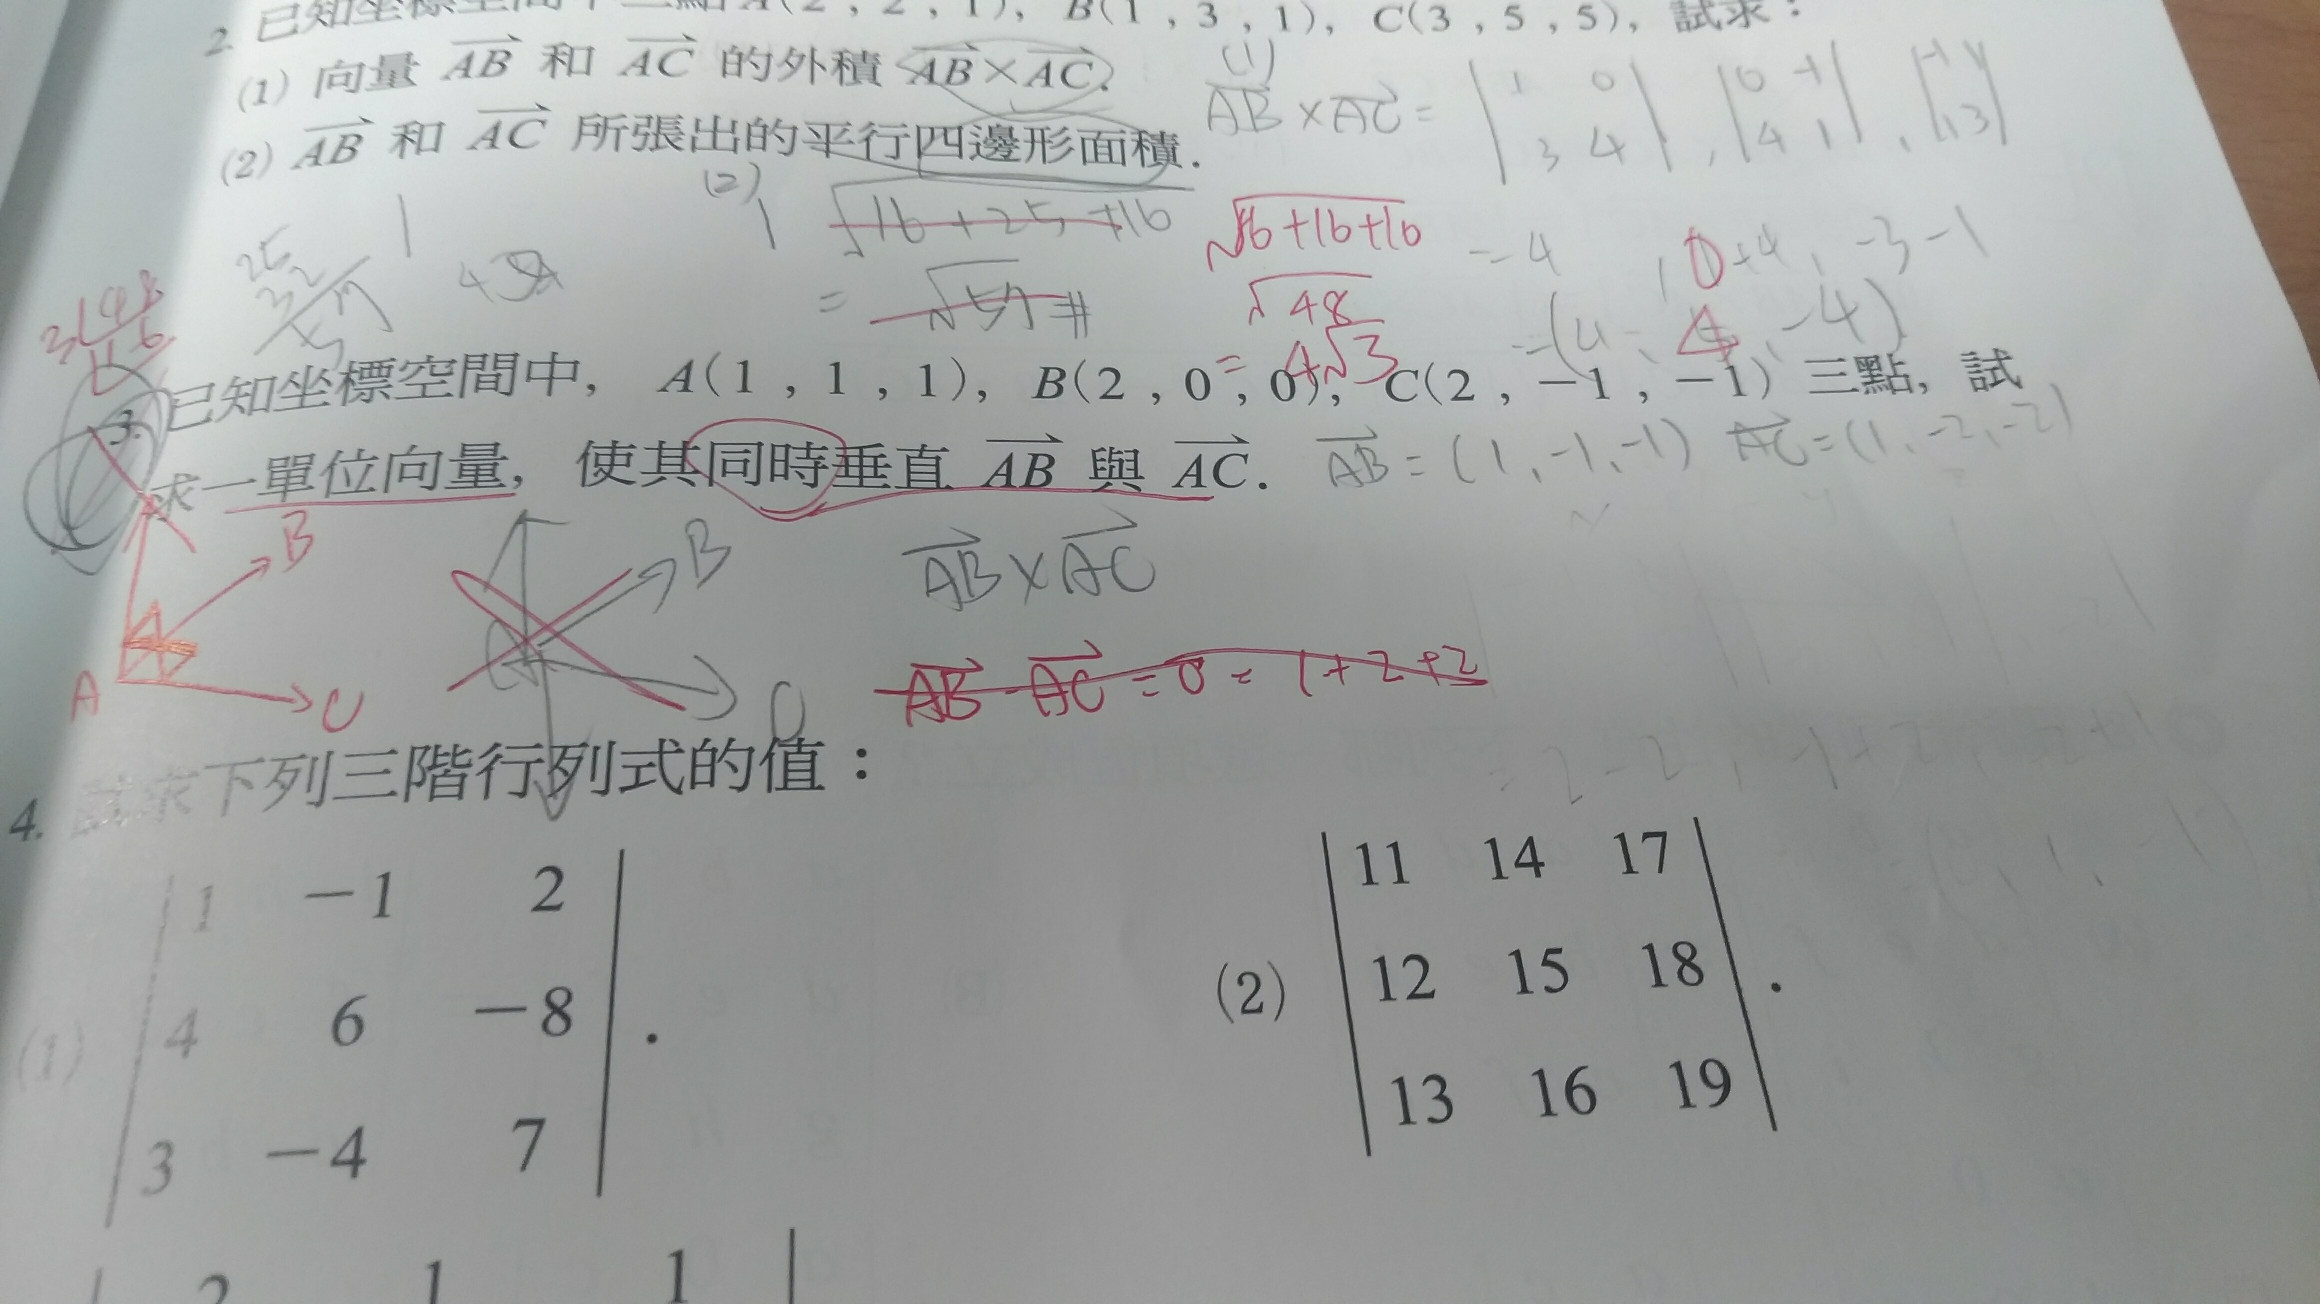 2. 已知坐標空間中三點 A(2 , 2 , 1), B(1 , 3 , 1), C(3 , 5 , 5), 試求：
(1) 向量 AB 和 AC 的外積 AB×AC.
(1)
AB×AC = | 1 0 | , | 0 -1 | , | -1 1 |
| 3 4 | | 4 1 | | 1 3 |
(2) AB 和 AC 所張出的平行四邊形面積.
(2)
√16+25+16
√16+16+16
= 4 , 0+4 , -3-1
= √57 #
√48
= 4√3
= (4, 4, -4)
3. 已知坐標空間中, A(1 , 1 , 1), B(2 , 0 , 0), C(2 , −1 , −1) 三點, 試
求一單位向量, 使其同時垂直 AB 與 AC.
AB = (1, -1, -1) AC = (1, -2, -2)
B
A
C
B
C
AB×AC
AB·AC = 0 = 1+2+2
4. 試求下列三階行列式的值：
(1)
1 −1 2
4 6 −8
3 −4 7
.
(2)
11 14 17
12 15 18
13 16 19
.
2 1 1